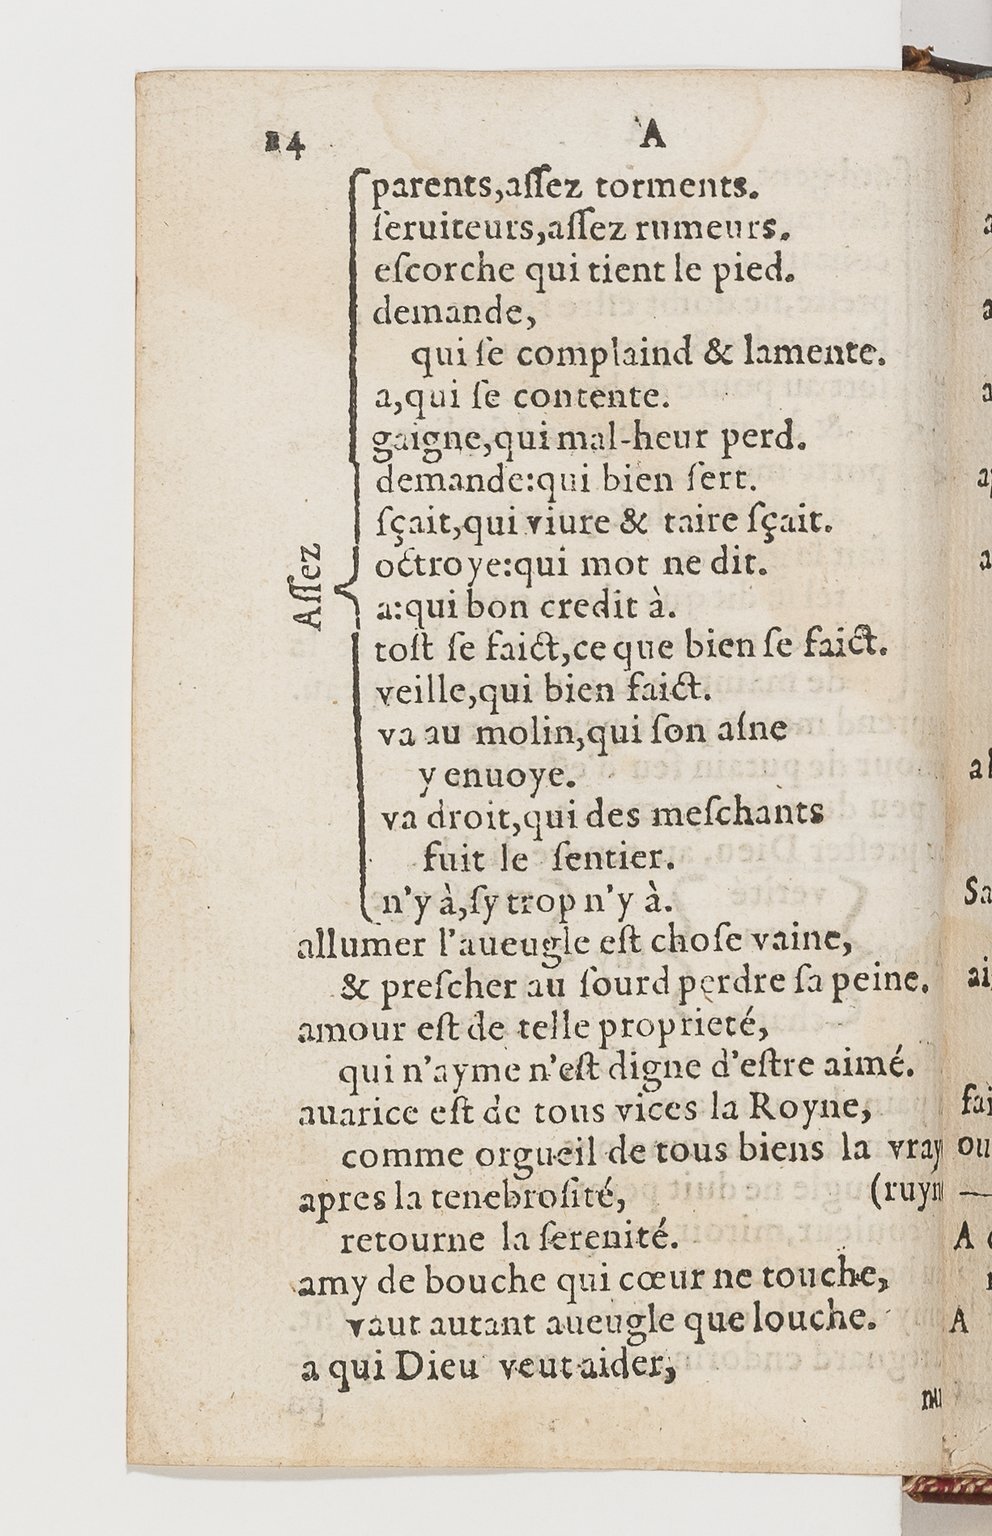 24 A
parents,aſſez torments.
ſeruiteurs,aſſez rumeurs.
eſcorche qui tient le pied.
demande,
qui ſe complaind & lamente.
a,qui ſe contente.
gaigne,qui mal-heur perd.
demande:qui bien ſert.
ſçait,qui viure & taire ſçait.
octroye:qui mot ne dit.
Aſſez
a:qui bon credit à.
toſt ſe faict,ce que bien ſe faict.
veille,qui bien faict.
va au molin,qui ſon aſne
y enuoye.
va droit,qui des meſchants
fuit le ſentier.
n'y à,ſy trop n'y à.
allumer l'aueugle eſt choſe vaine,
& preſcher au ſourd perdre ſa peine.
amour eſt de telle proprieté,
qui n'ayme n'eſt digne d'eſtre aimé.
auarice eſt de tous vices la Royne,
comme orgueil de tous biens la vray
apres la tenebroſité, (ruyn
retourne la ſerenité.
amy de bouche qui cœur ne touche,
vaut autant aueugle que louche.
a qui Dieu veut aider,